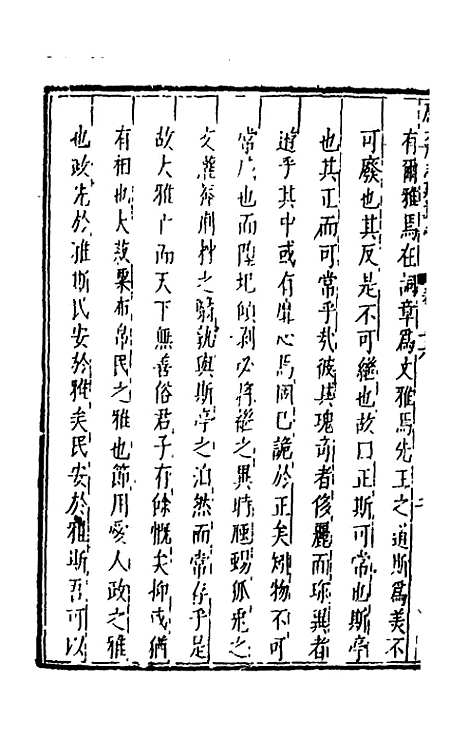 有爾雅焉在詞章爲文雅焉先王之道斯爲美不
可廢也其反是不可繼也故曰正斯可常也斯亭
也其正而可常乎哉彼其瑰奇者侈麗而珍異者
遊乎其中或有靡心焉固已詭於正矣矧物不可
常 也而陞圯傾剥必將繼之異時 蜴狐兎之
文灌莽荊棘之 孰與斯亭之泊然而常存乎是
故大雅亡而天下無善俗君子有餘慨矣抑或猶
有相也大菽粟布帛民之雅也節用愛人政之雅
也政先於雅斯民安於雅矣民安於雅斯吾可以